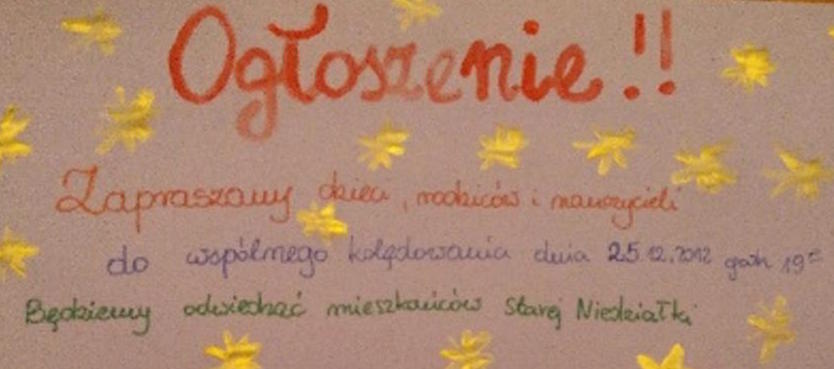 Ogłoszenie!!
Zapraszamy dzieci, rodziców i nauczycieli
do wspólnego kolędowania dnia 25.12.2012 godz. 19⁰⁰
Będziemy odwiedzać mieszkańców Starej Niedziałki